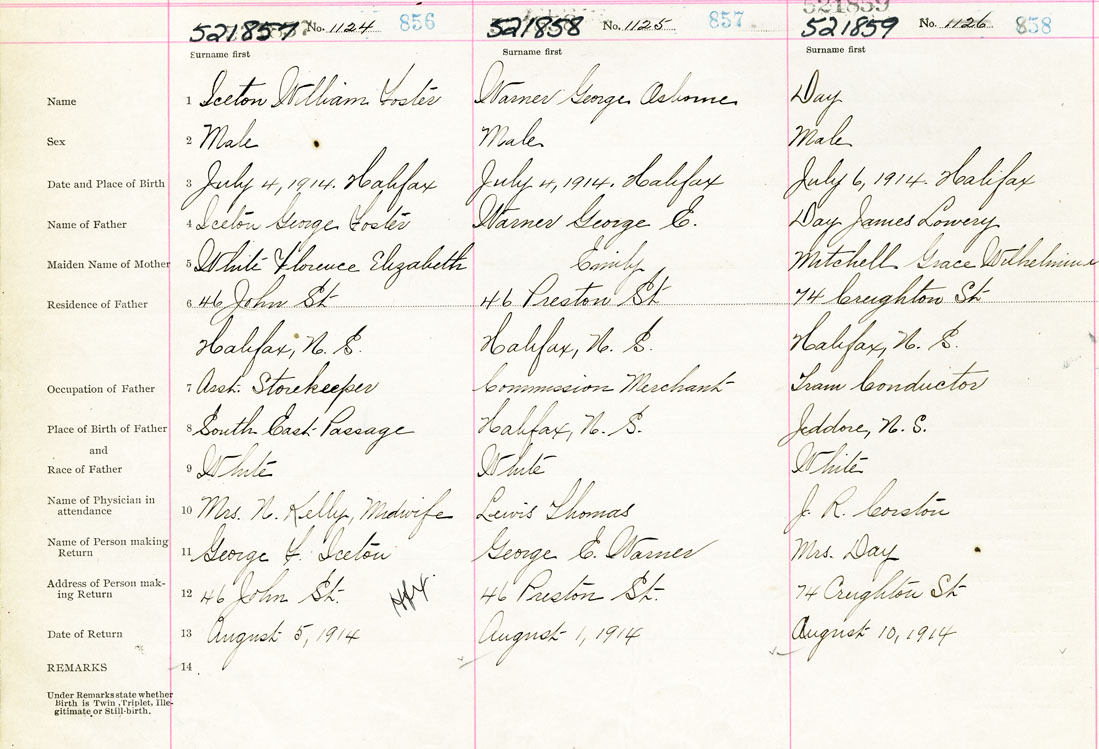 521857 No. 1124 856 521858 No. 1125 857 521859 No. 1126 858
521859
Surname first Surname first Surname first
Name 1 Iceton William Foster Warner George Osborne Day
Sex 2 Male Male Male
Date and Place of Birth 3 July 4, 1914. Halifax July 4, 1914. Halifax July 6, 1914. Halifax
Name of Father 4 Iceton George Foster Warner George E. Day James Lowery
Maiden Name of Mother 5 White Florence Elizabeth Emily Mitchell Grace Wilhelmina
Residence of Father 6 46 John St 46 Preston St 74 Creighton St
Halifax, N. S. Halifax, N. S. Halifax, N. S.
Occupation of Father 7 Asst. Storekeeper Commission Merchant Tram Conductor
Place of Birth of Father 8 South East Passage Halifax, N. S. Jeddore, N. S.
and
Race of Father 9 White White White
Name of Physician in
attendance 10 Mrs. N. Kelly, Midwife Lewis Thomas J. R. Corston
Name of Person making
Return 11 George F. Iceton George E. Warner Mrs. Day
Address of Person mak-
ing Return 12 46 John St. Hfx. 46 Preston St. 74 Creighton St
Date of Return 13 August 5, 1914 August 1, 1914 August 10, 1914
REMARKS 14
Under Remarks state whether
Birth is Twin, Triplet, Ille-
gitimate or Still-birth.